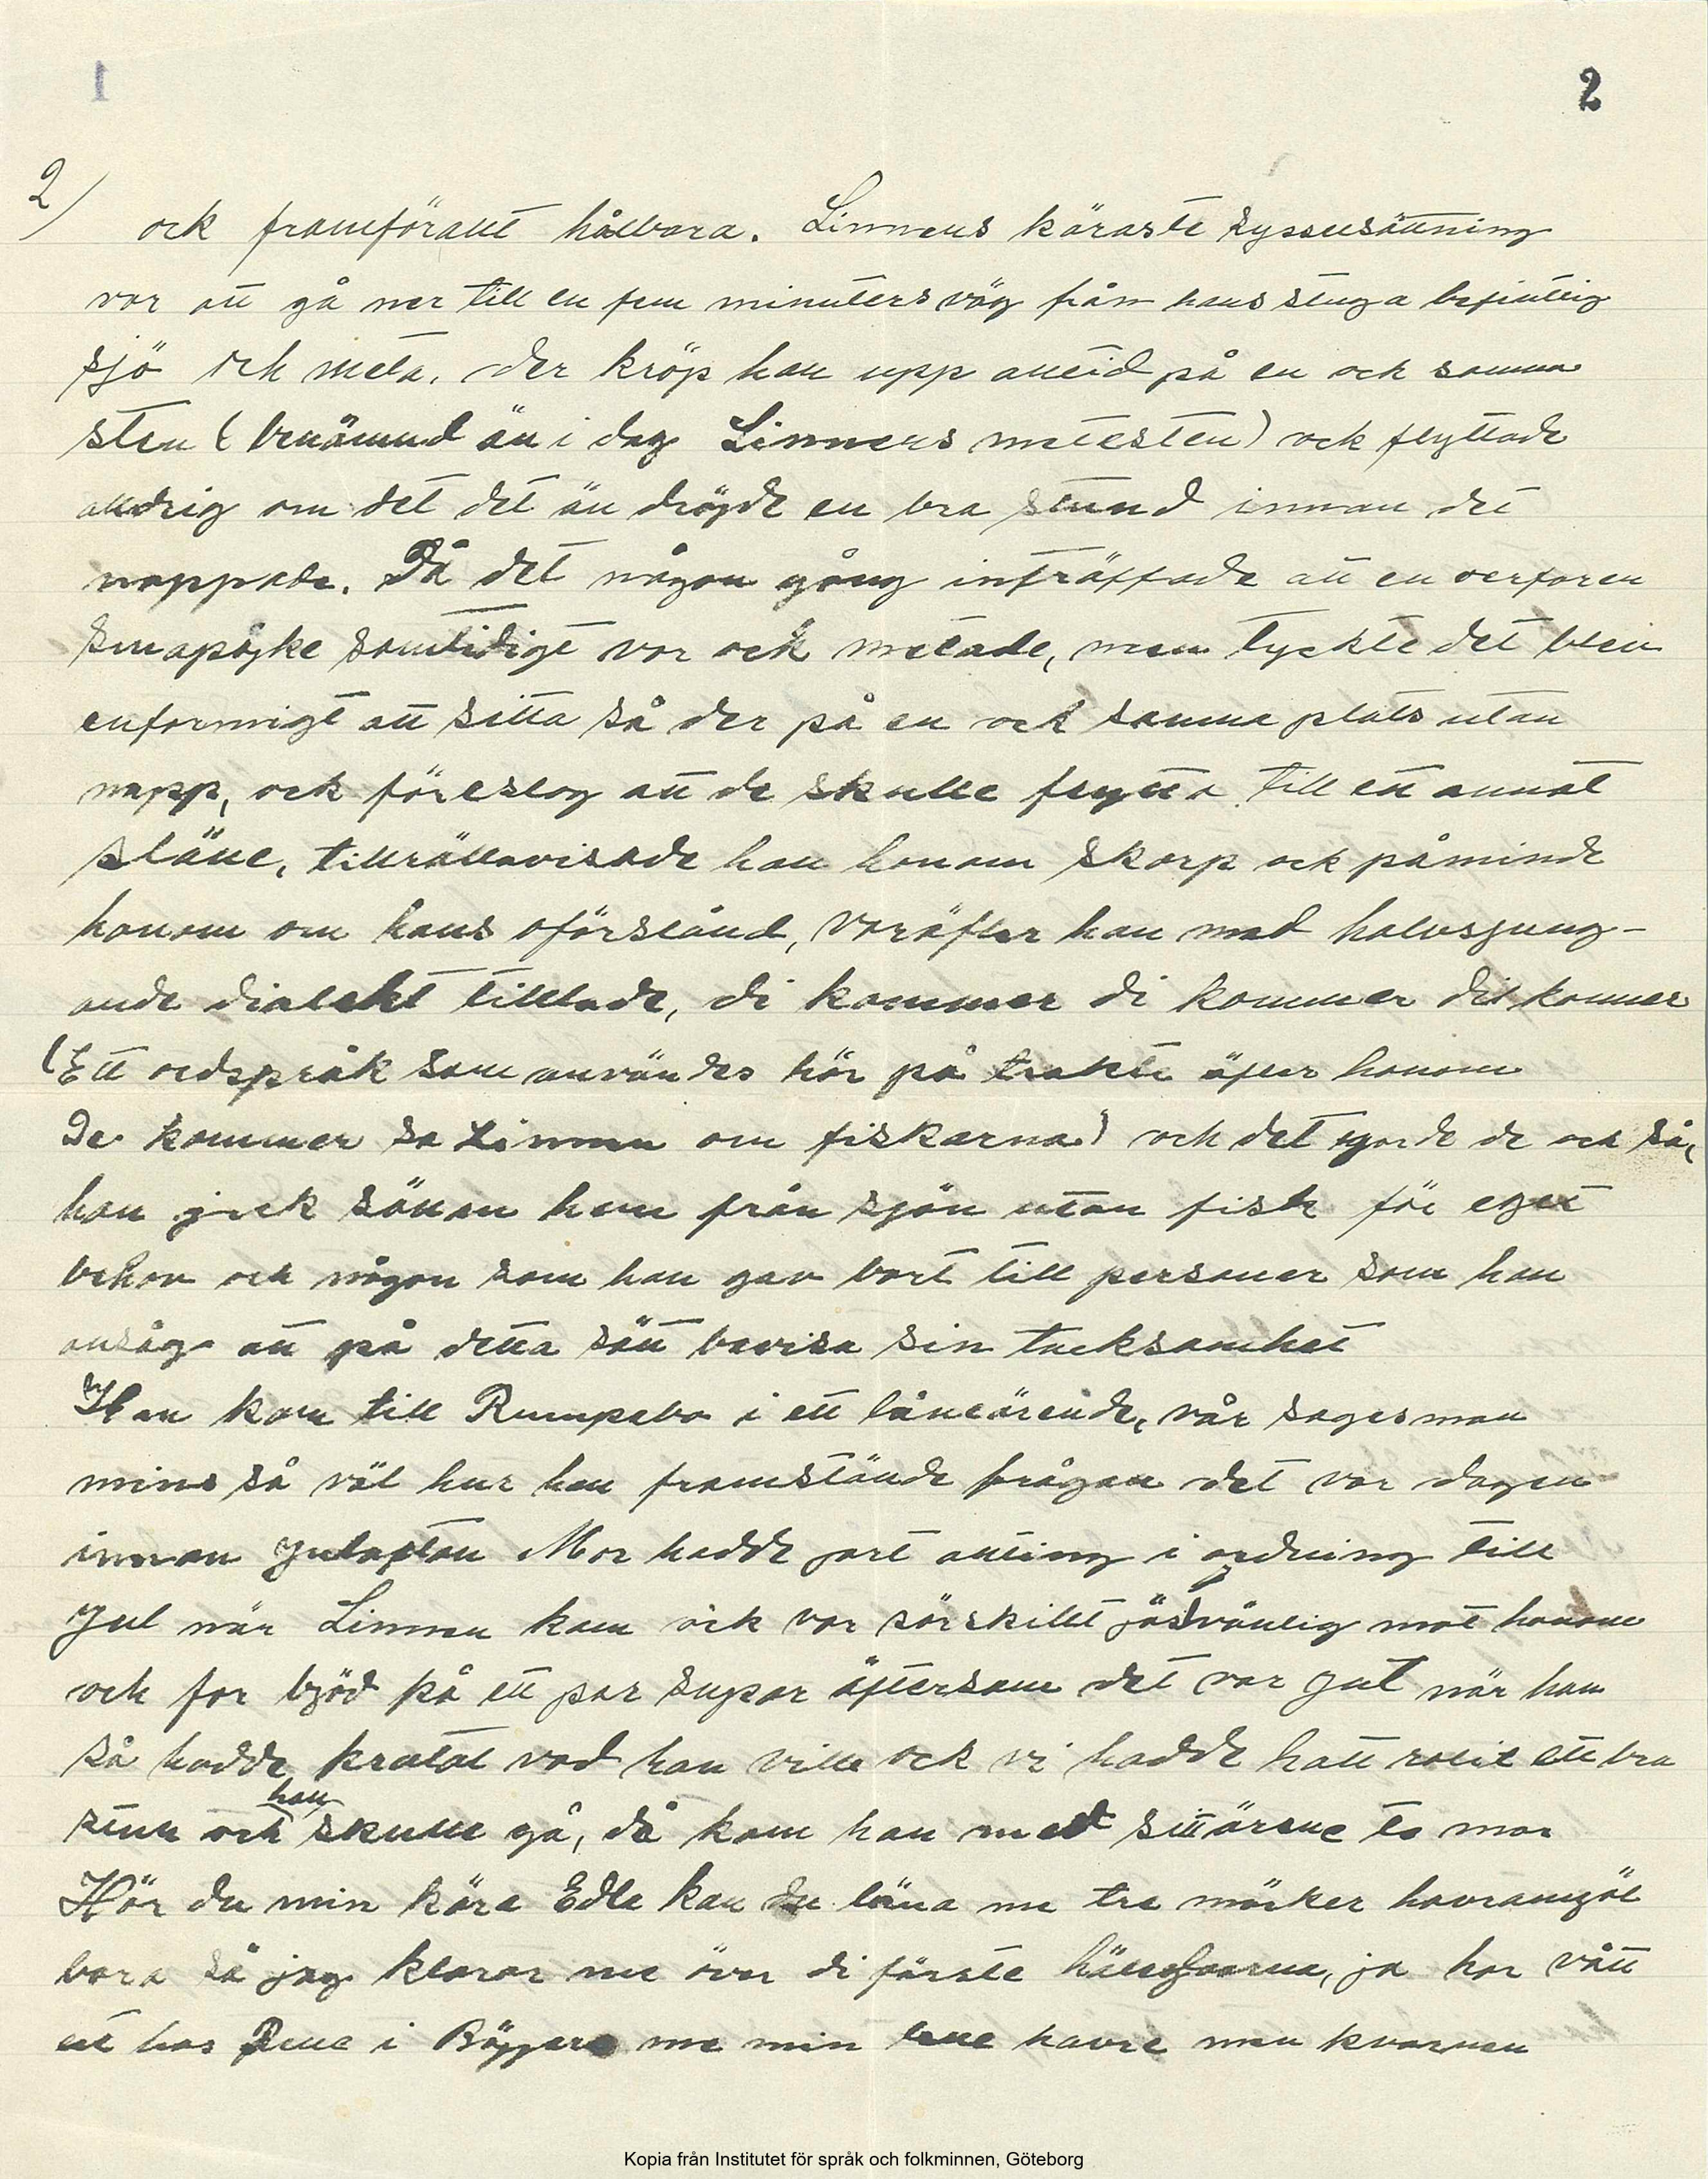 1
2
2/
ock framförallt hållbara. Linnens käraste sysselsättning
var att gå ner till en fem minuters väg från hans stuga befintlig
sjö och meta, der kröp han upp alltid på en och samma
sten (benämnd än i dag Linnens metesten) ock flyttade
alldrig om det det än dröjde en bra stund innan det
nappade. Då det någon gång inträffade att en oerfaren
småpojke samtidigt var ock metade, men tyckte det blev
enformigt att sitta så der på en ock samma plats utan
napp, ock föreslog att de skulle flytta till ett annat
ställe, tillrättavisade han honom skarp ock påminde
honom om hans oförstånd, varäfter han med halvsjung-
ande dialekt tillade, di kommer di kommer di kommer
(Ett ordspråk som användes här på trakte äfter honom
De kommer sa Linnen om fiskarna) och det gjorde de ock så,
han gick sällan hem från sjön utan fisk för eget
behov och någon som han gav bort till personer som han
ansåg att på detta sätt bevisa sin tacksamhet
Han kom till Rumpebo i ett låneärende, vår sagesman
mins så väl hur han framstälde frågan det var dagen
innan Julafton Mor hadde jort allting i ordning till
Jul när Linnen kom ock var särskillt jästvänlig mot honom
och far bjöd på ett par supar äftersom det var Jul när han
så hadde pratat vad han ville ock vi hadde hatt rolit ett bra
stun och han skulle gå, då kom han med sitt ärene te mor
Hör du min kära Edla kan du låna me tre märker havramjöl
bara så jag klarar me över di förste häledaarna, ja har vått
ett hos i me min havre men kvarnen
Kopia från Institutet för språk och folkminnen, Göteborg